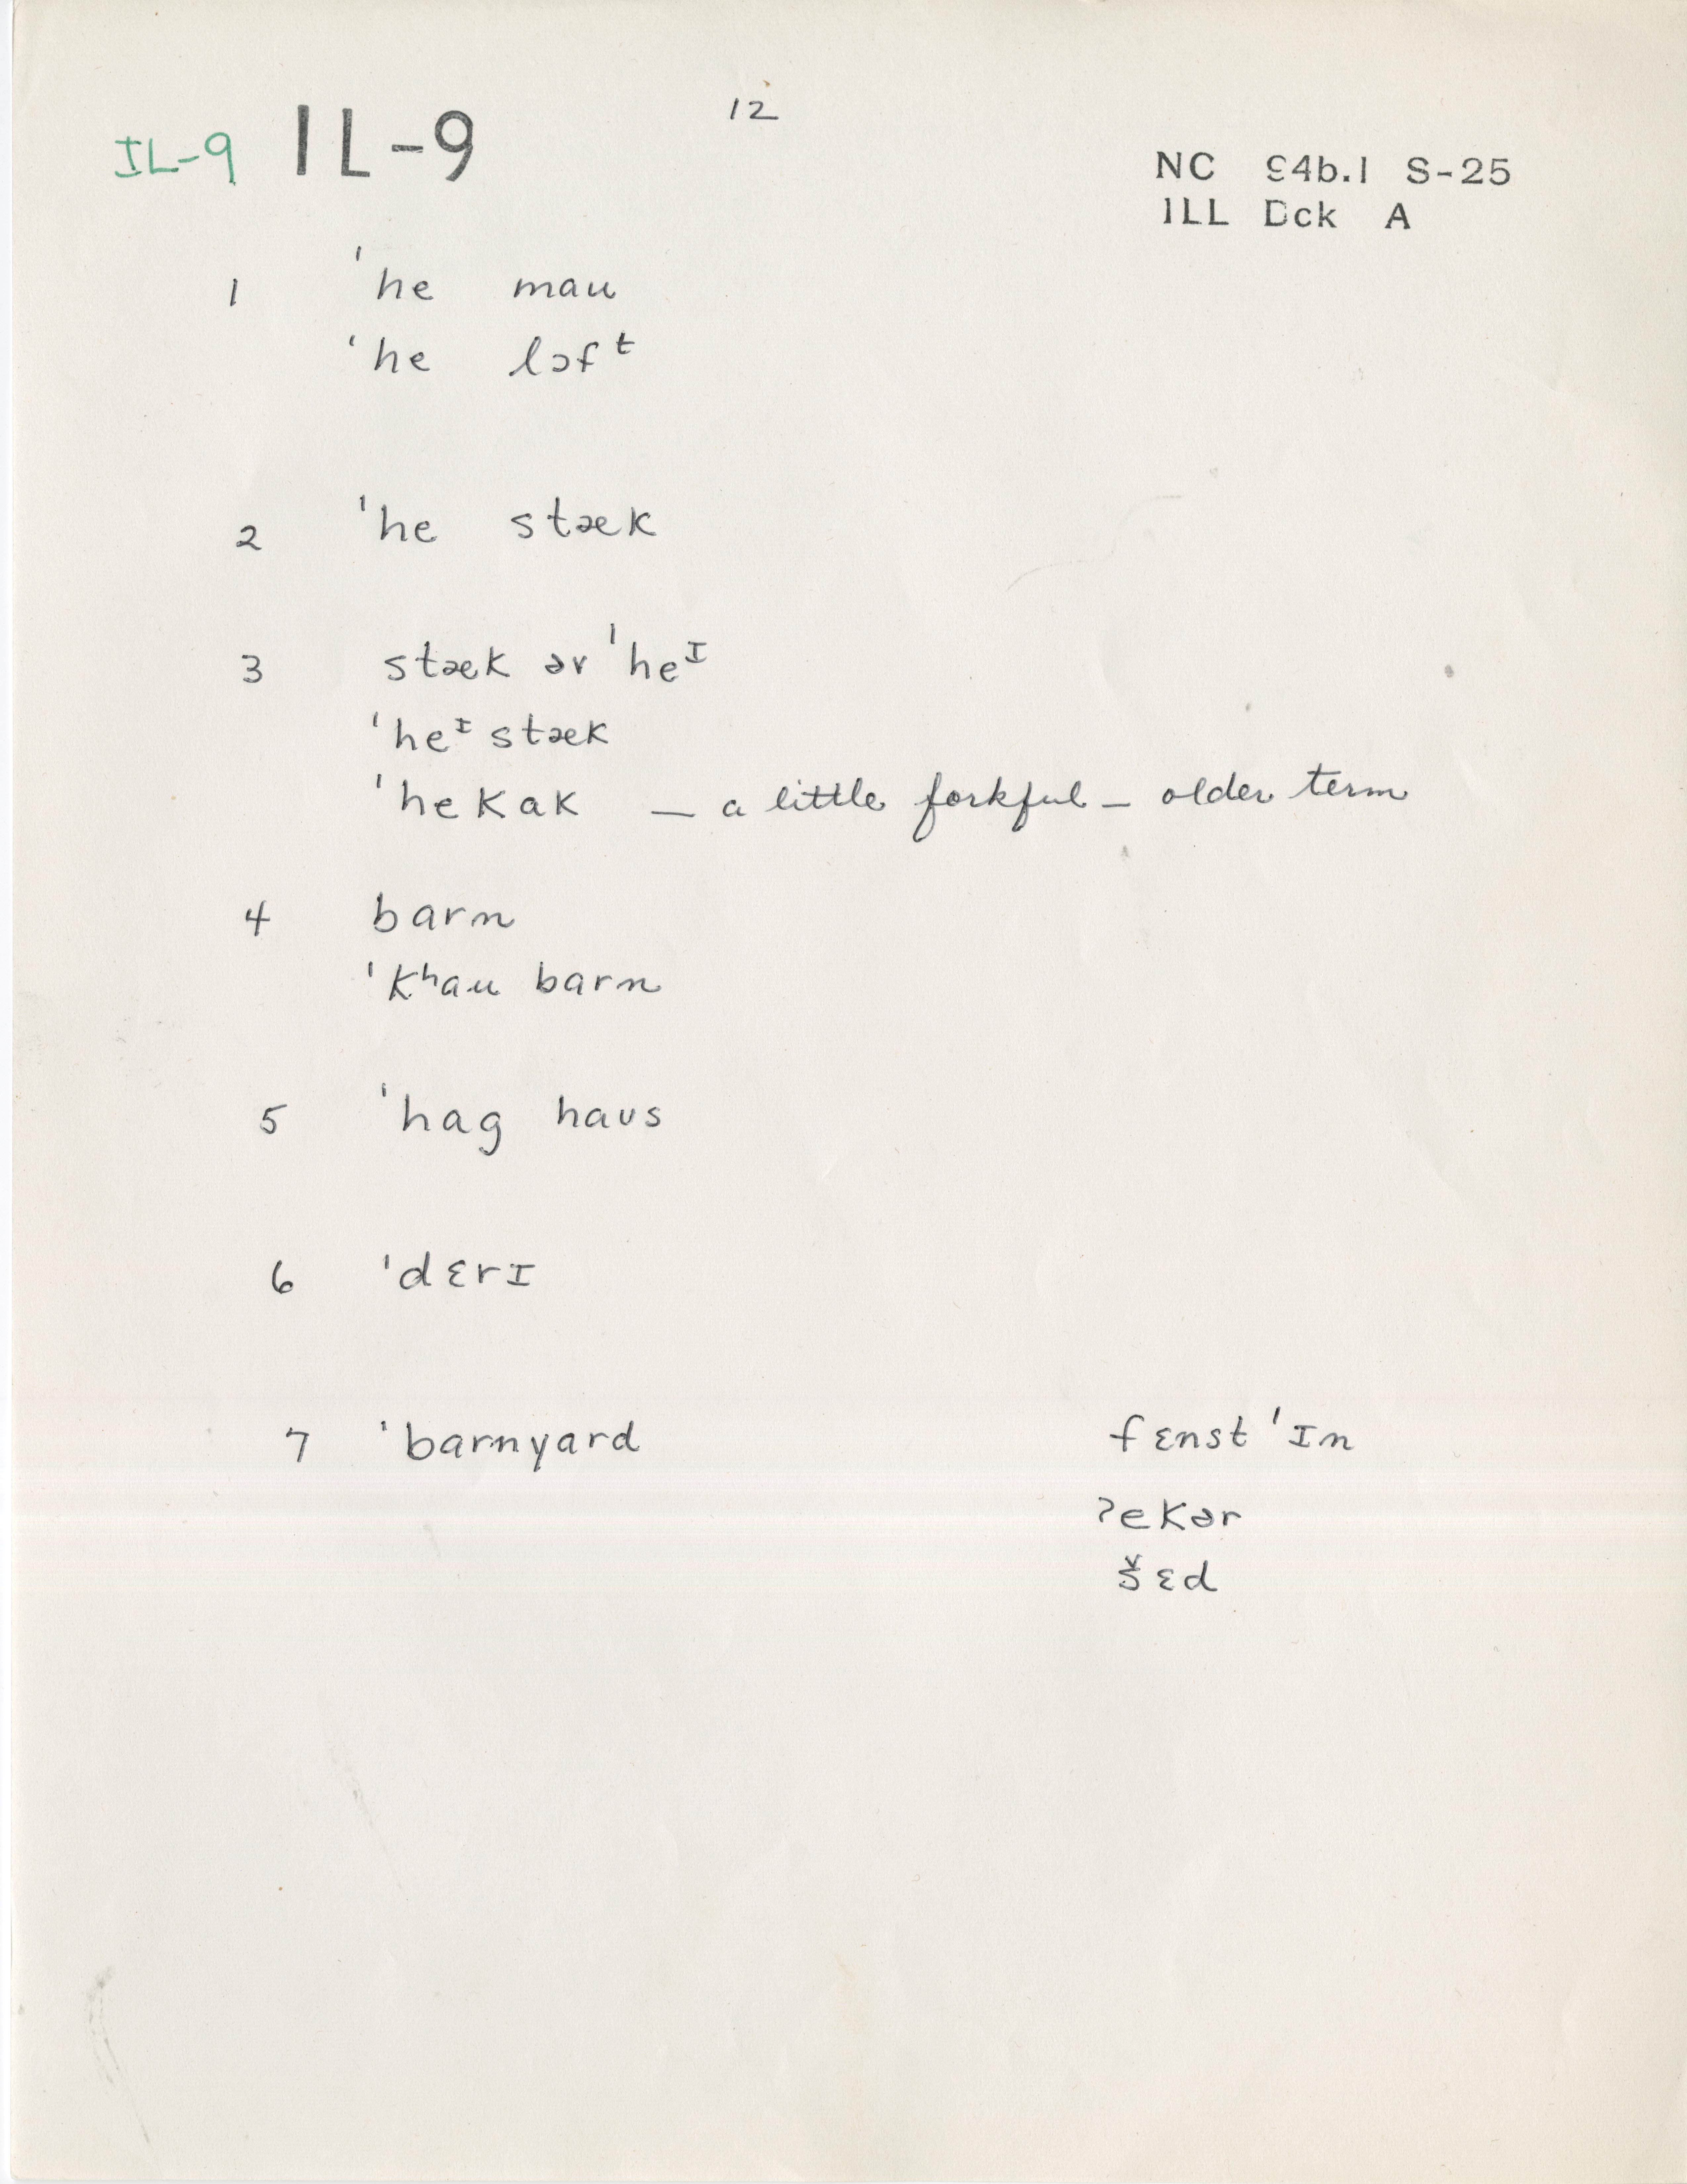 12
IL-9 IL-9
NC 94b.1 S-25
ILL Dck A
1 ˈhe mau
ˈhe lɔfᵗ
2 ˈhe stæk
3 stæk əv ˈheᴵ
ˈheᴵ stæk
ˈhekak — a little forkful — older term
4 barn
ˈkʰau barn
5 ˈhag haus
6 ˈdɛrɪ
7 ˈbarnyard fɛnst ˈɪn
ʔekər
šɛd